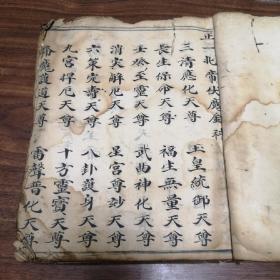 正一北帝伏魔金科
三清應化天尊
玉皇統御天尊
長生保命天尊
福生無量天尊
壬癸至靈天尊
武曲神化天尊
消災解厄天尊
星宮尊妙天尊
六策定壽天尊
八卦護身天尊
九宮捍厄天尊
十方靈寶天尊
護道天尊
雷聲普化天尊